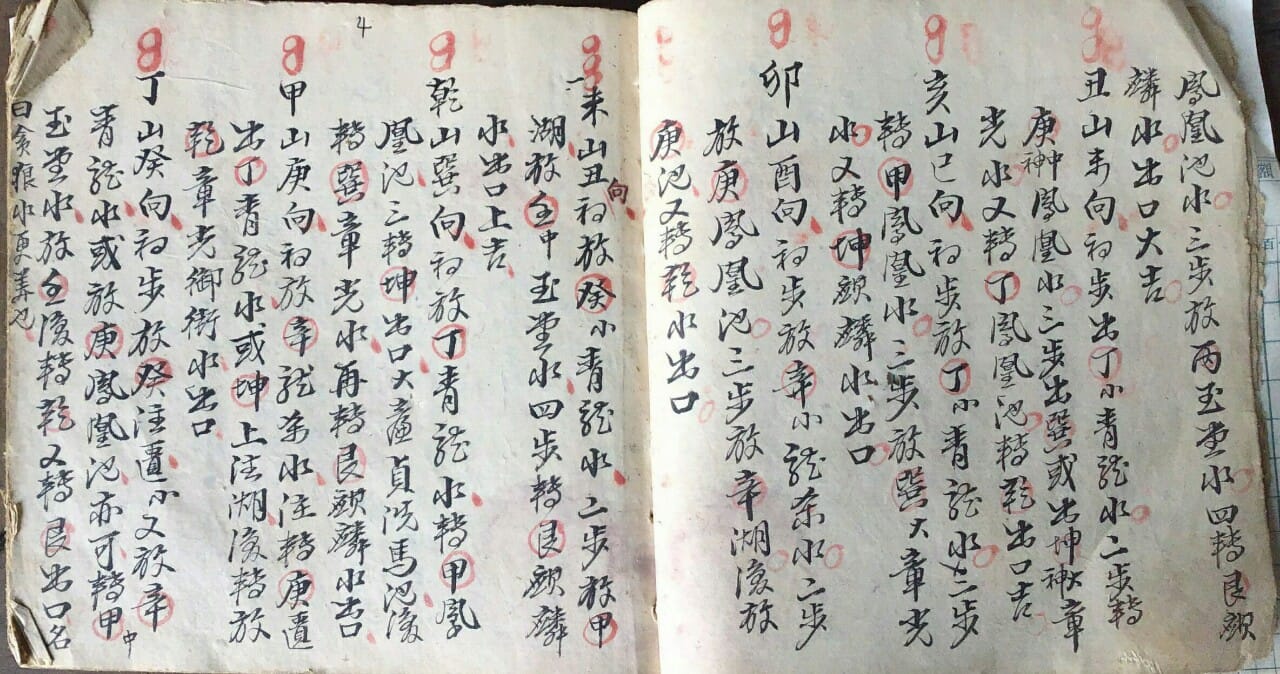 鳳凰池水三步放丙玉堂水四轉艮麒
麟水出口大吉
丑山未向初步出丁小青龍水二步轉
庚中神鳳凰水三步出巽或出坤大神章
光水又轉丁鳳凰池轉乾出口吉
亥山巳向初步放丁小青龍水二步
轉甲鳳凰水三步放巽大章光
水又轉坤麒麟水出口
卯山酉向初步放辛小龍朶水二步
放庚鳳凰池三步放辛湖後放
庚池又轉乾水出口
4
未山丑向初放癸小青龍水二步放甲
湖放壬中玉堂水四步轉艮麒麟
水出口上吉
乾山巽向初放丁青龍水轉甲鳳
凰池三轉坤出口大廉貞洗馬池後
轉巽章光水再轉艮麒麟水出口
甲山庚向初放辛龍朶水注轉庚
出丁青龍水或坤上注湖後轉放
乾章光御街水出口
丁山癸向初步放癸注小又放辛
青龍水或放庚鳳凰池亦可轉甲中
玉堂水放壬後轉乾又轉艮出口名
曰貪狼水更美也